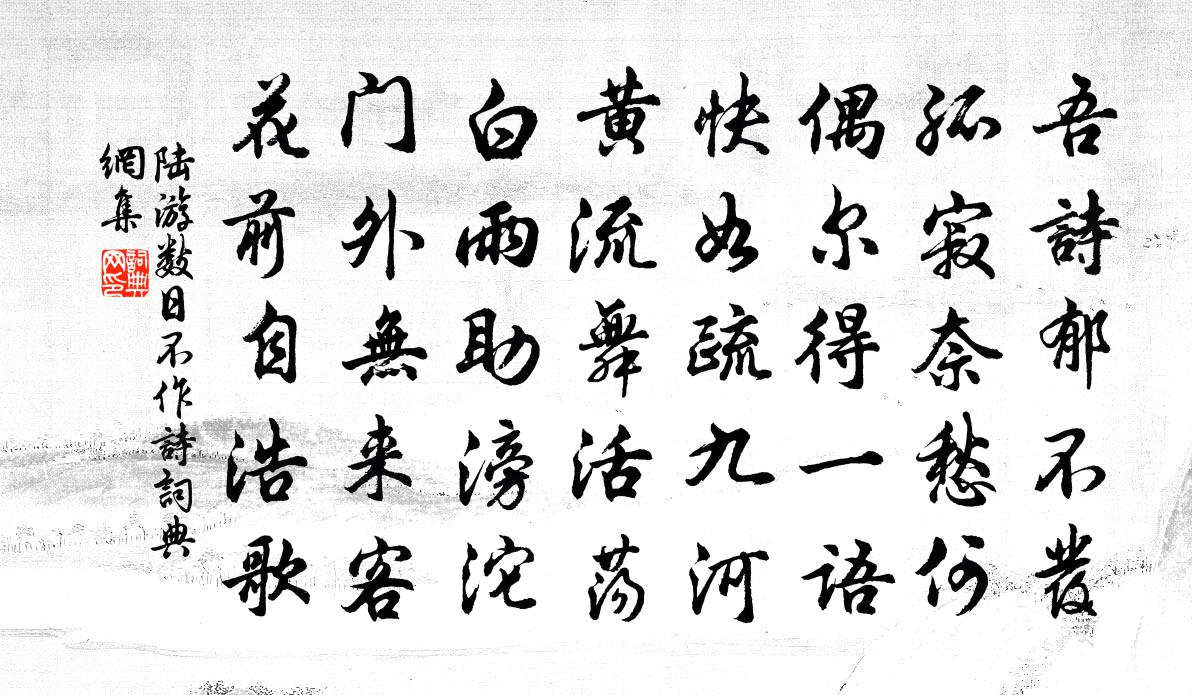 吾詩郁不發
孤寂奈愁何
偶尔得一語
快如疏九河
黄流舞活荡
白雨助滂沱
门外無来客
花前自浩歌
陆游数日不作詩詞典
網集
詞典
网印